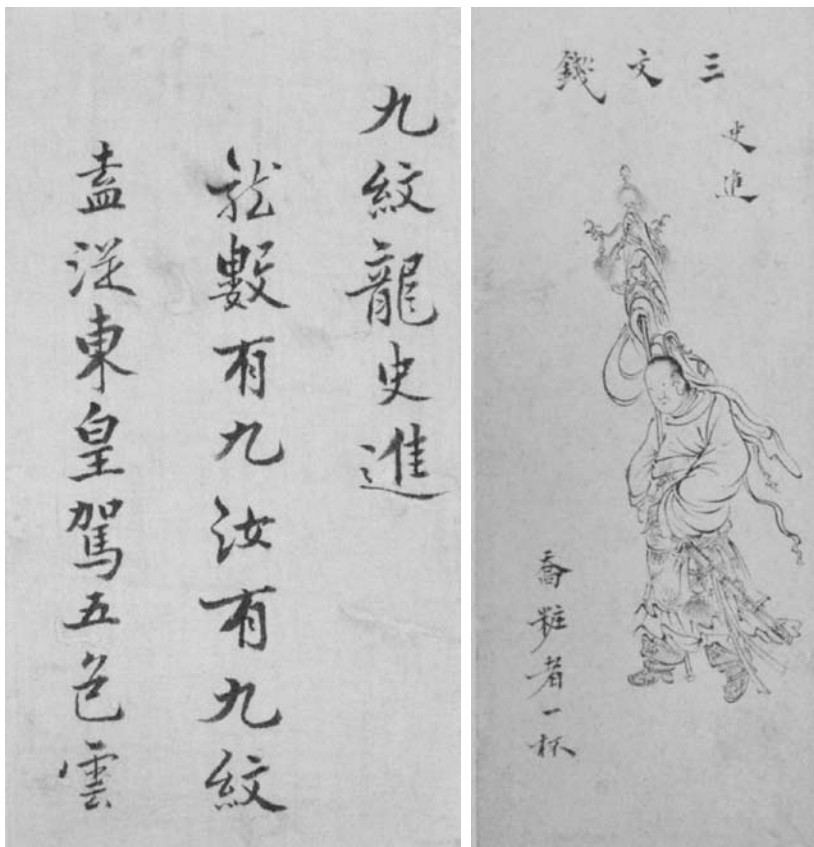 九紋龍史進
龍數有九汝有九紋
盍從東皇駕五色雲
三文錢
史進
喬粧者一杯